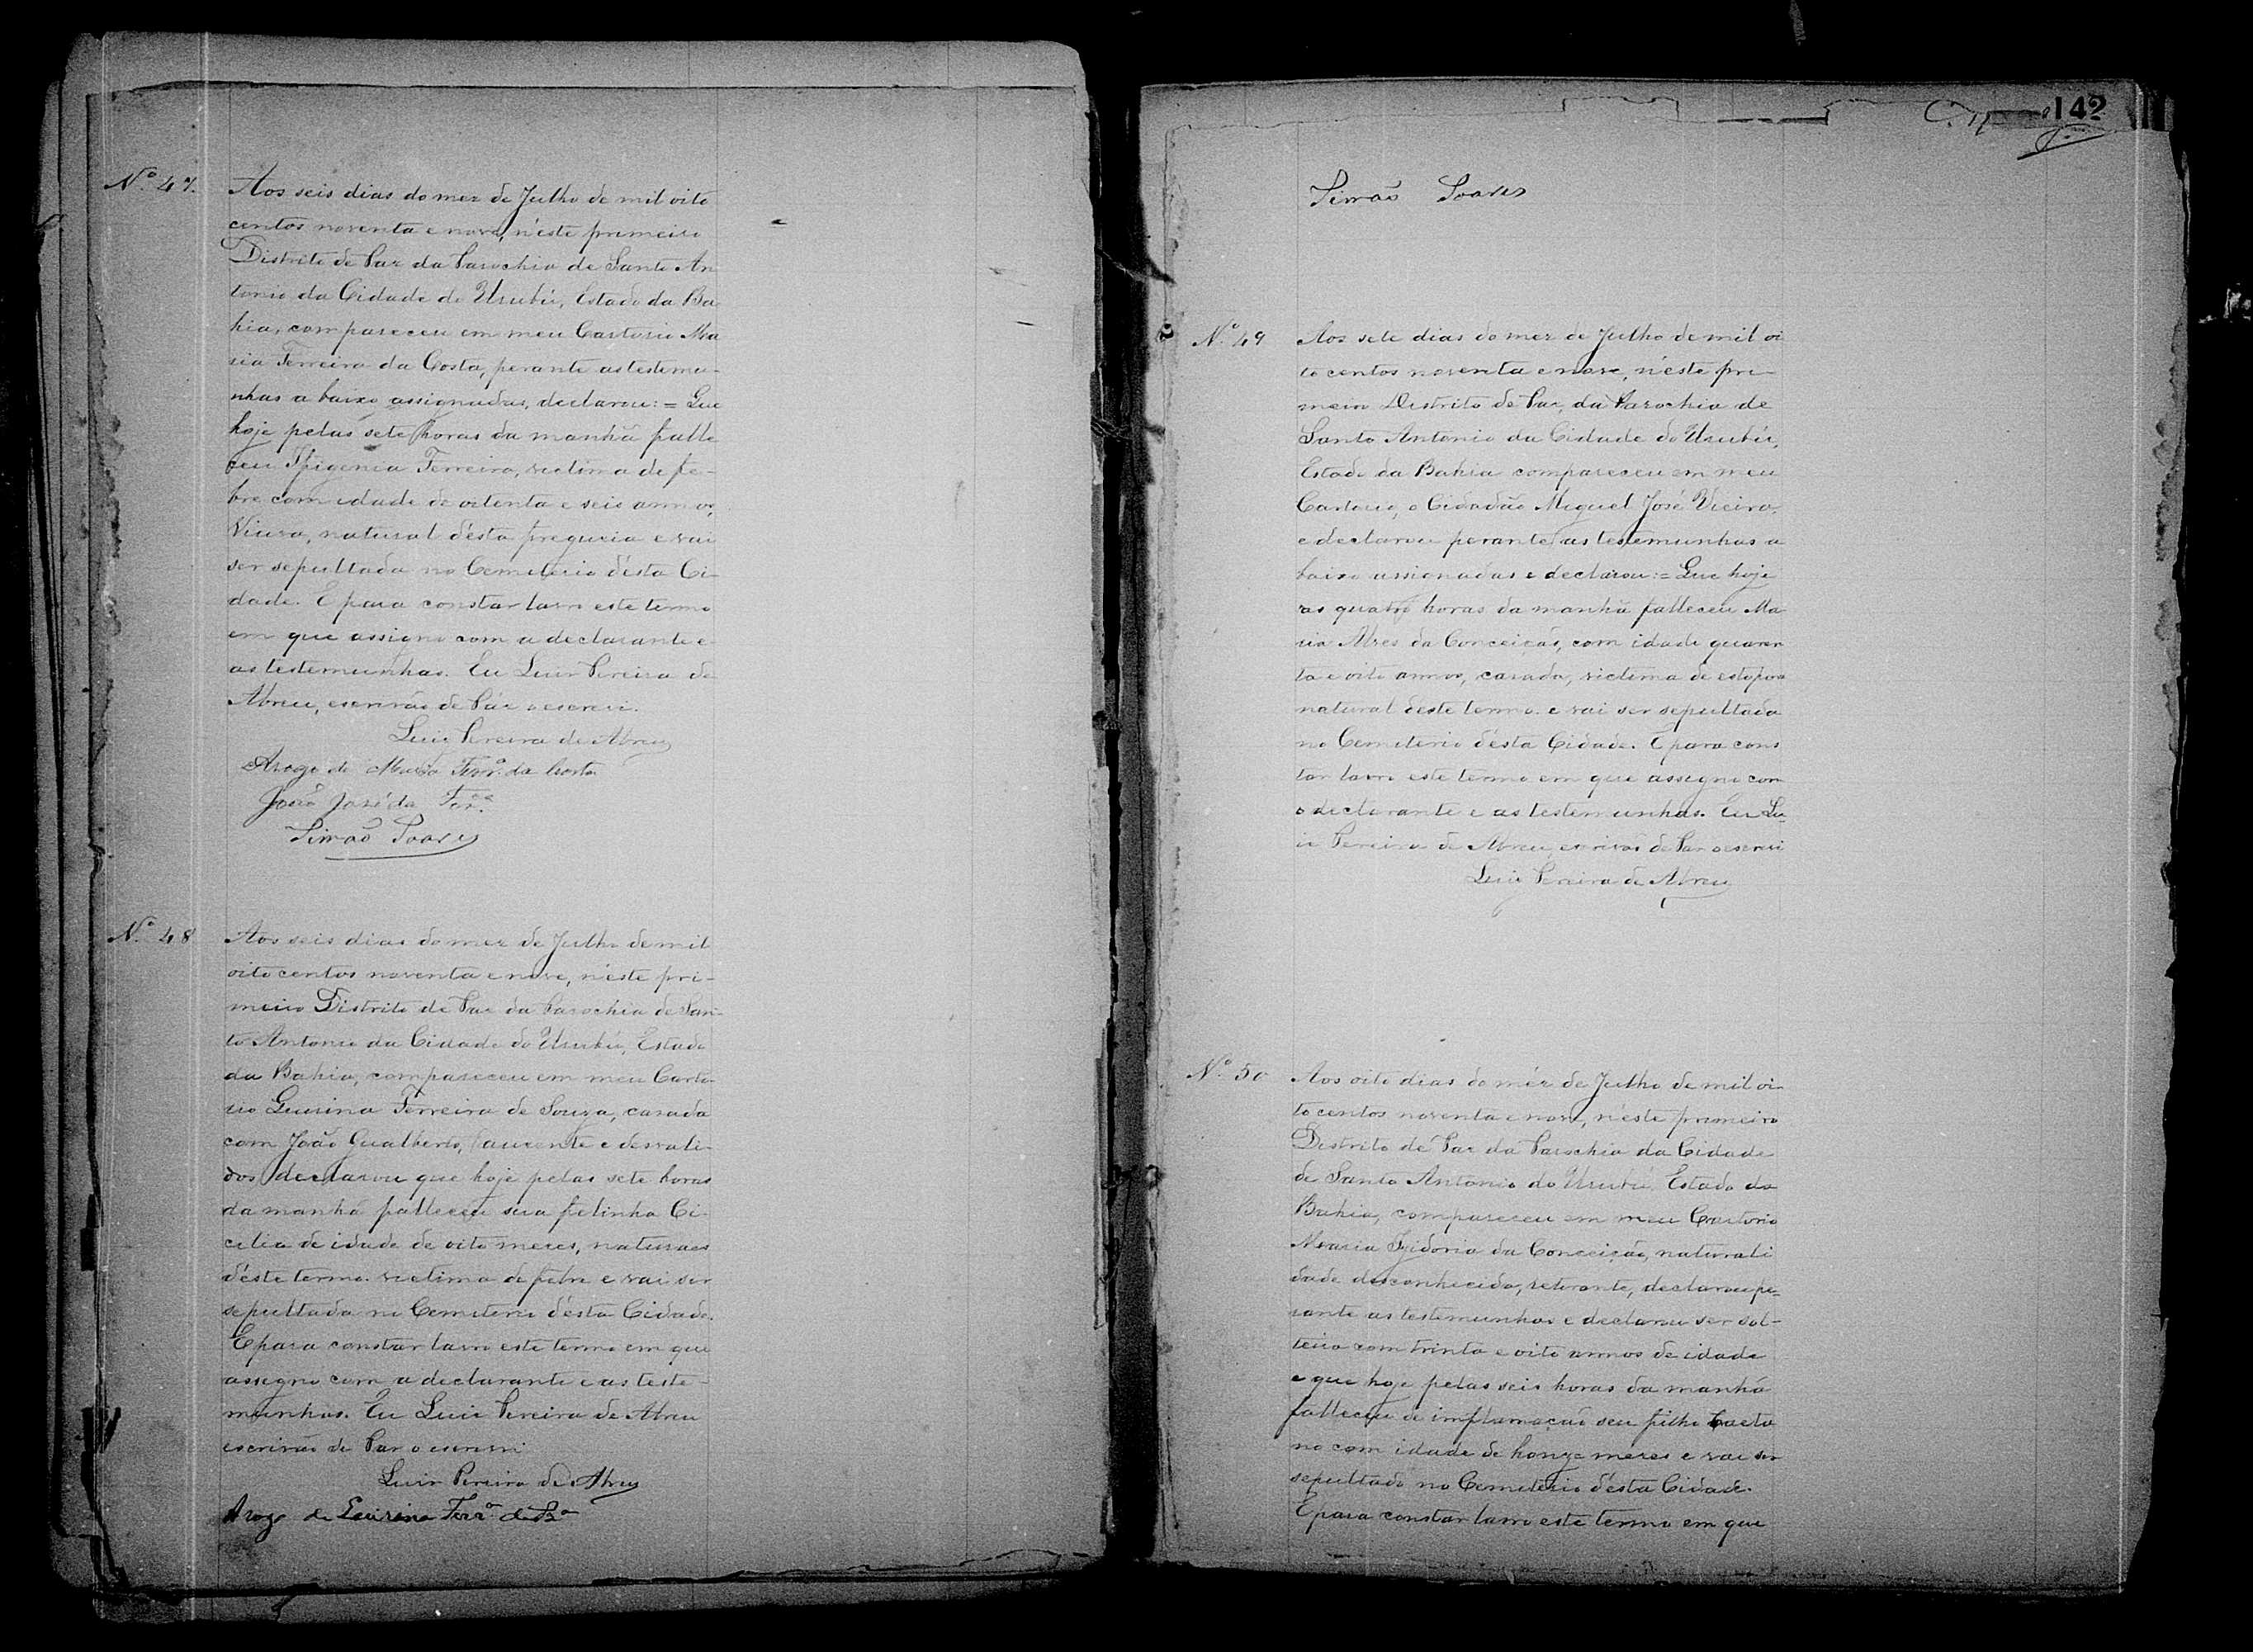 Nº 47. Aos seis dias do mez de Julho de mil oito
centos noventa e nove, n'éste primeiro
Districto de Paz da Parochia de Santo An
tonio da Cidade do Urubú, Estado da Ba
hia, compareceu em meu Cartorio Ma
ria Ferreira da Costa, perante as testemu-
nhas a baixo assignadas, declarou: = Que
hoje pelas sete horas da manhã falle
ceu Ifigenia Ferreira, victima de fe-
bre com idade de oitenta e seis annos,
Viuva, natural d'ésta freguezia e vai
ser sepultada no Cemiterio d'ésta Ci-
dade. E para constar lavro este termo
em que assigno com a declarante e
as testemunhas. Eu Luiz Pereira de
Abreu, escrivão de Páz o escrevi.
Luiz Pereira de Abreu
Arogo de Maria Ferrª da Costa
João José da
Simão Soares
Nº 48 Aos seis dias do mez de Julho de mil
oito centos noventa e nove, n'éste pri-
meiro Districto de Paz da Parochia de San-
to Antonio da Cidade do Urubú, Estado
da Bahia, compareceu em meu Carto-
rio Ferreira de Souza, casada
com João Gualberto, (auzente e desvali-
dos) declarou que hoje pelas sete horas
da manhã falleceu sua filinha Ci-
cilia de idade de oito mezes, naturaes
d'éste termo. victima de febre e vai ser
sepultada no Cemiterio d'ésta Cidade.
E para constar lavro este termo em que
assigno com a declarante e as teste-
munhas. Eu Luiz Pereira de Abreu
escrivão de Paz o escrevi
Luiz Pereira de Abreu
Arogo de Ferrª de
142
Simão Soares
Nº 49 Aos sete dias do mez de Julho de mil oi
to centos noventa e nove, n'éste pri-
meiro Districto de Paz, da Parochia de
Santo Antonio da Cidade do Urubú,
Estado da Bahia compareceu em meu
Cartorio, o Cidadão Miguel José Vieira,
e declarou perante as testemunhas a
baixo assignadas e declarou: = Que hoje
as quatro horas da manhã falleceu Ma
ria Alves da Conceição, com idade quaren
ta e oito annos, casada, victima de estopor
natural deste termo. e vai ser sepultada
no Cemiterio d'ésta Cidade. E para cons
tar lavro este termo em que assigno com
o declarante e as testemunhas. Eu Lu
iz Pereira de Abreu, escrivão de Paz o escrevi
Luiz Pereira de Abreu
Nº 50 Aos oito dias do méz de Julho de mil oi
to centos noventa e nove, n'éste primeiro
Districto de Paz da Parochia da Cidade
de Santo Antonio do Urubú. Estado da
Bahia, compareceu em meu Cartorio
Maria Izidoria da Conceição, naturali
dade desconhecida, retirante, declarou pe-
rante as testemunhas e declarou ser sol-
teira com trinta e oito annos de idade
e que hoje pelas seis horas da manhã
falleceu de imflamação seu filho Caeta
no com idade de honze mezes e vai ser
sepultado no Cemiterio d'ésta Cidade.
E para constar lavro este termo em que